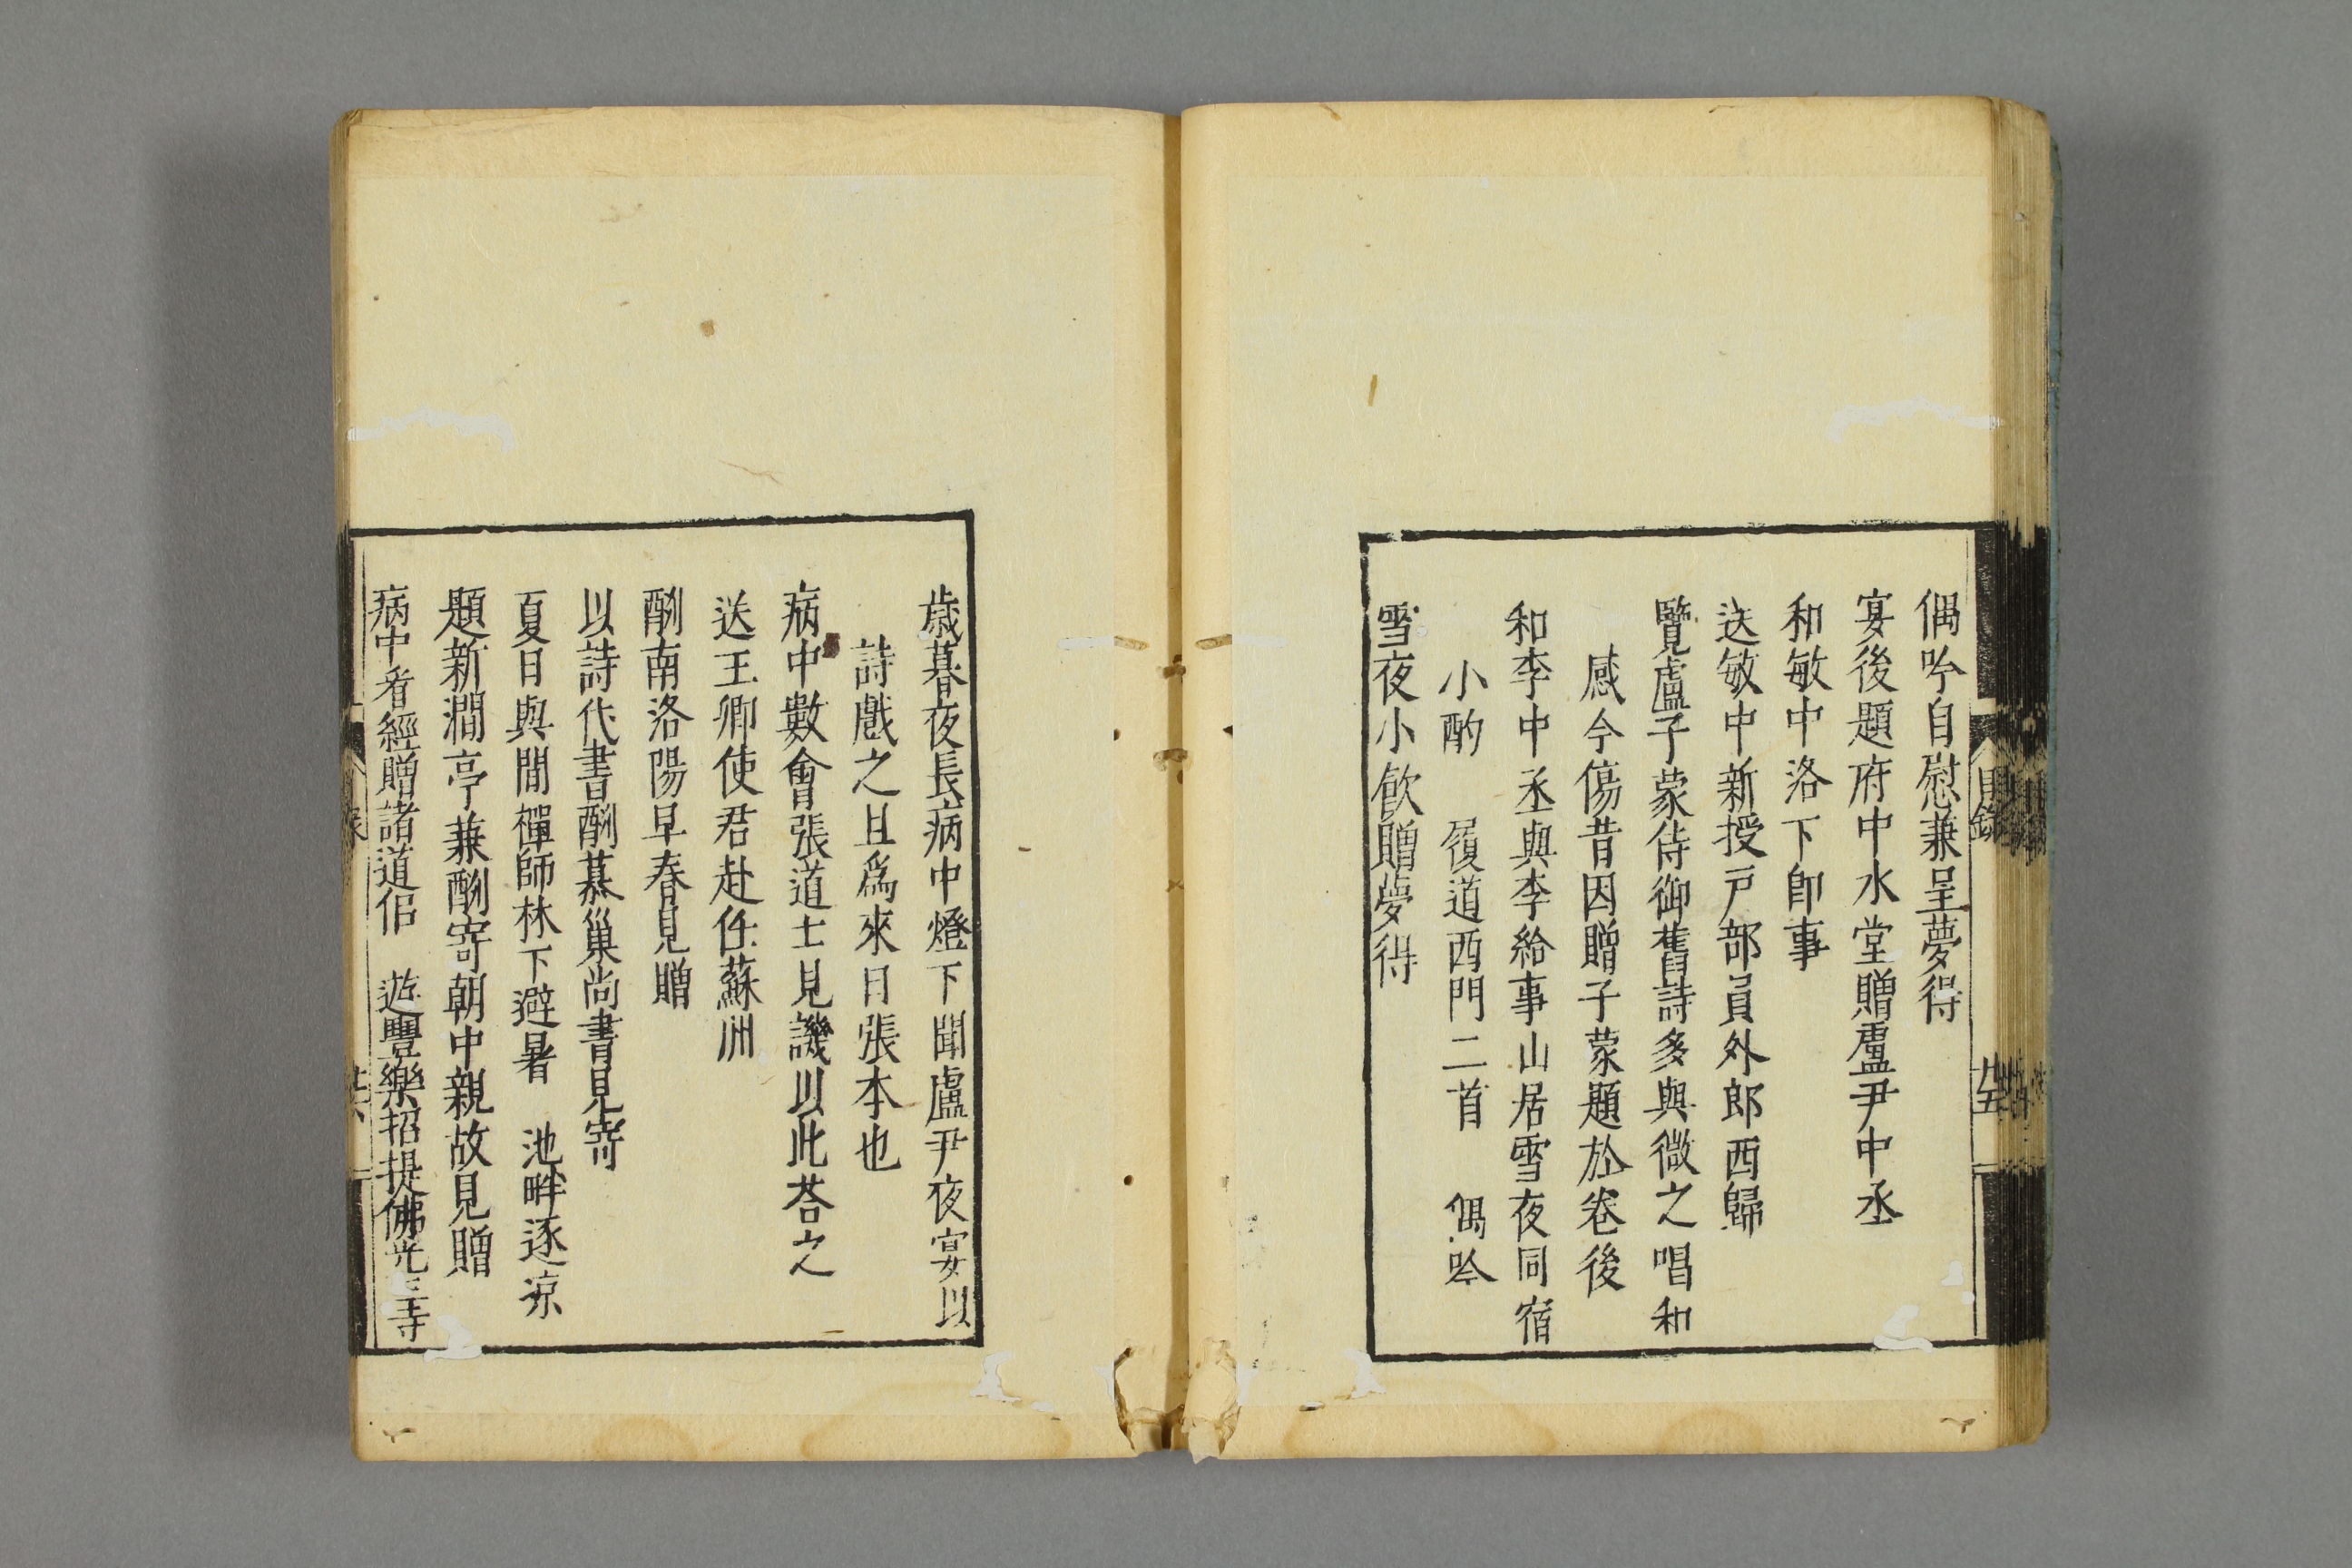 偶吟自慰兼呈夢得
宴後題府中水堂贈盧尹中丞
和敏中洛下卽事
送敏中新授戸部員外郎西歸
覽盧子蒙侍御舊詩多與微之唱和
感今傷昔因贈子蒙題於卷後
和李中丞與李給事山居雪夜同宿
小酌　履道西門二首　偶吟
雪夜小飮贈夢得
目錄
歲暮夜長病中燈下聞盧尹夜宴以
詩戲之且爲來日張本也
病中數會張道士見譏以此荅之
送王卿使君赴任蘇洲
酬南洛陽早春見贈
以詩代書酬慕巢尚書見寄
夏日與閒禪師林下避暑　池畔逐凉
題新澗亭兼酬寄朝中親故見贈
病中看經贈諸道侶　遊豐樂招提佛光三寺